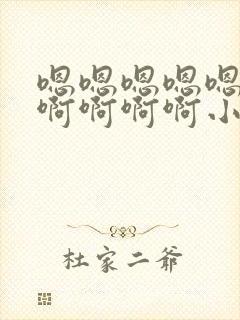 嗯嗯嗯嗯嗯
啊啊啊啊小
杜家二爷